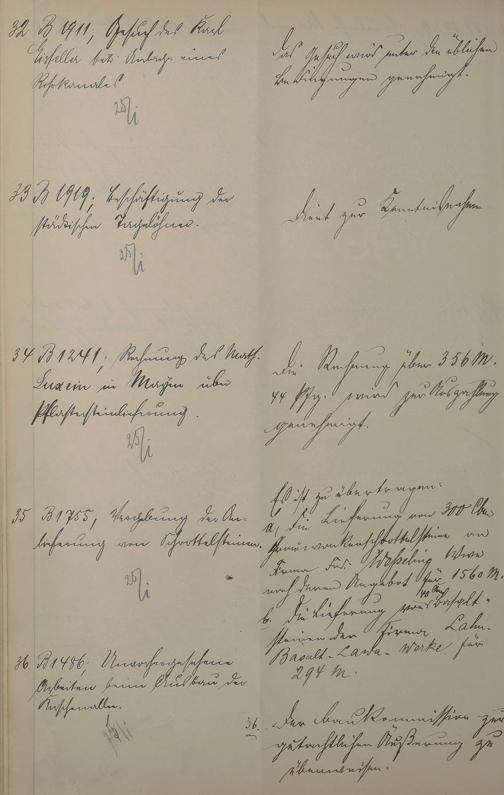 32 B 1911, Gesuch des Karl
betr. Anlage eines
Rohrkanales
Das Gesuch wird unter den üblichen
Bedingungen genehmigt.
33 B 1919; Beschäftigung der
städtischen Tagelöhner.
Dient zur Kenntnisnahme
34 B 1241; Rechnung des Math.
in Mayen über
Pflastersteinlieferung.
Die Rechnung über 356 M.
44 Pfg. wird zur Auszahlung
genehmigt.
35 B 1755, Vergebung der An-
lieferung von Schrottelsteinen.
Es ist zu übertragen:
a, die Lieferung von 300 Cbm
an
Firma Wwe
nach deren Angebot für 1560 M.
b. die Lieferung von Basalt-
steinen der Firma Lahn-
Basalt-Lava-Werke für
294 M.
36 B 1486. Unvorhergesehene
Arbeiten beim Ausbau der
36. Der Baukommission zur
gutachtlichen Äußerung zu
überweisen.